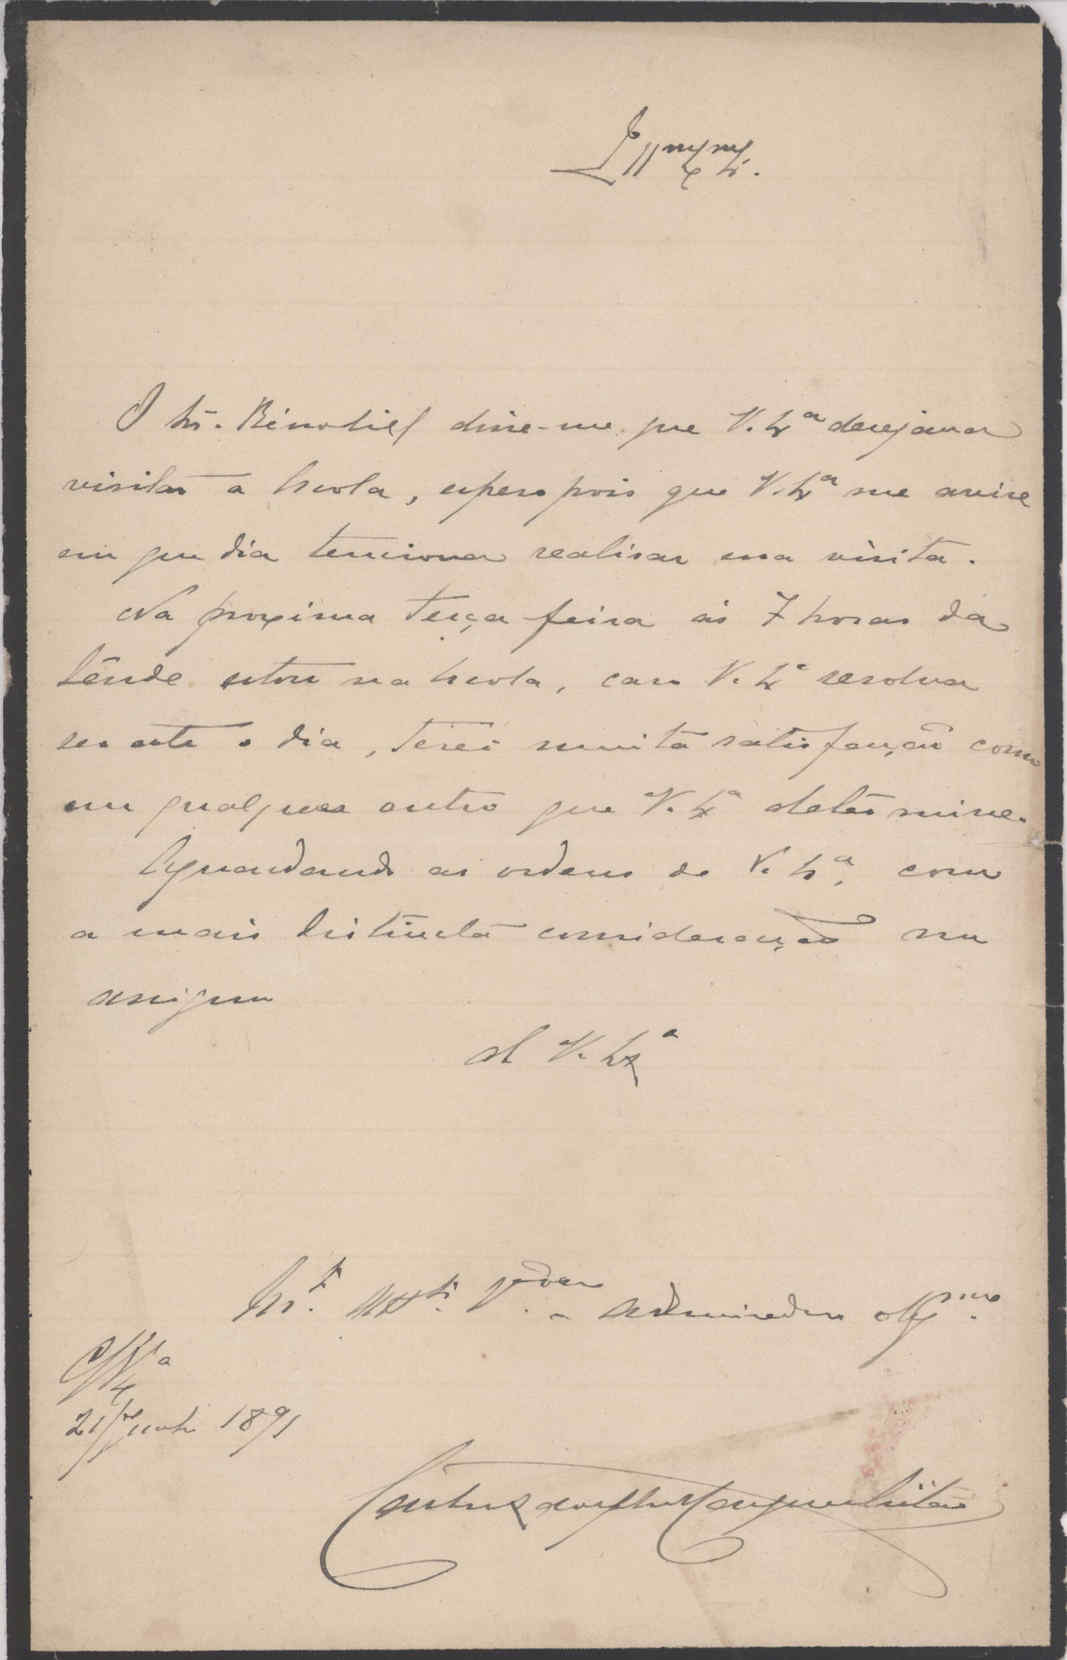 O Sr. Benoliel disse-me que V. Exª desejava
visitar a Escola, espero pois que V. Exª me avise
em que dia tenciona realisar essa visita.
Na proxima terça feira ás 7 horas da
tarde estou na Escola, caso V. Exª resolva
ser este o dia, terei muita satisfação como
em qualquer outro que V. Exª determine.
Aguardando as ordens de V. Exª, com
a mais distincta consideração me
assigno
De V. Exª
21/Junho 1891